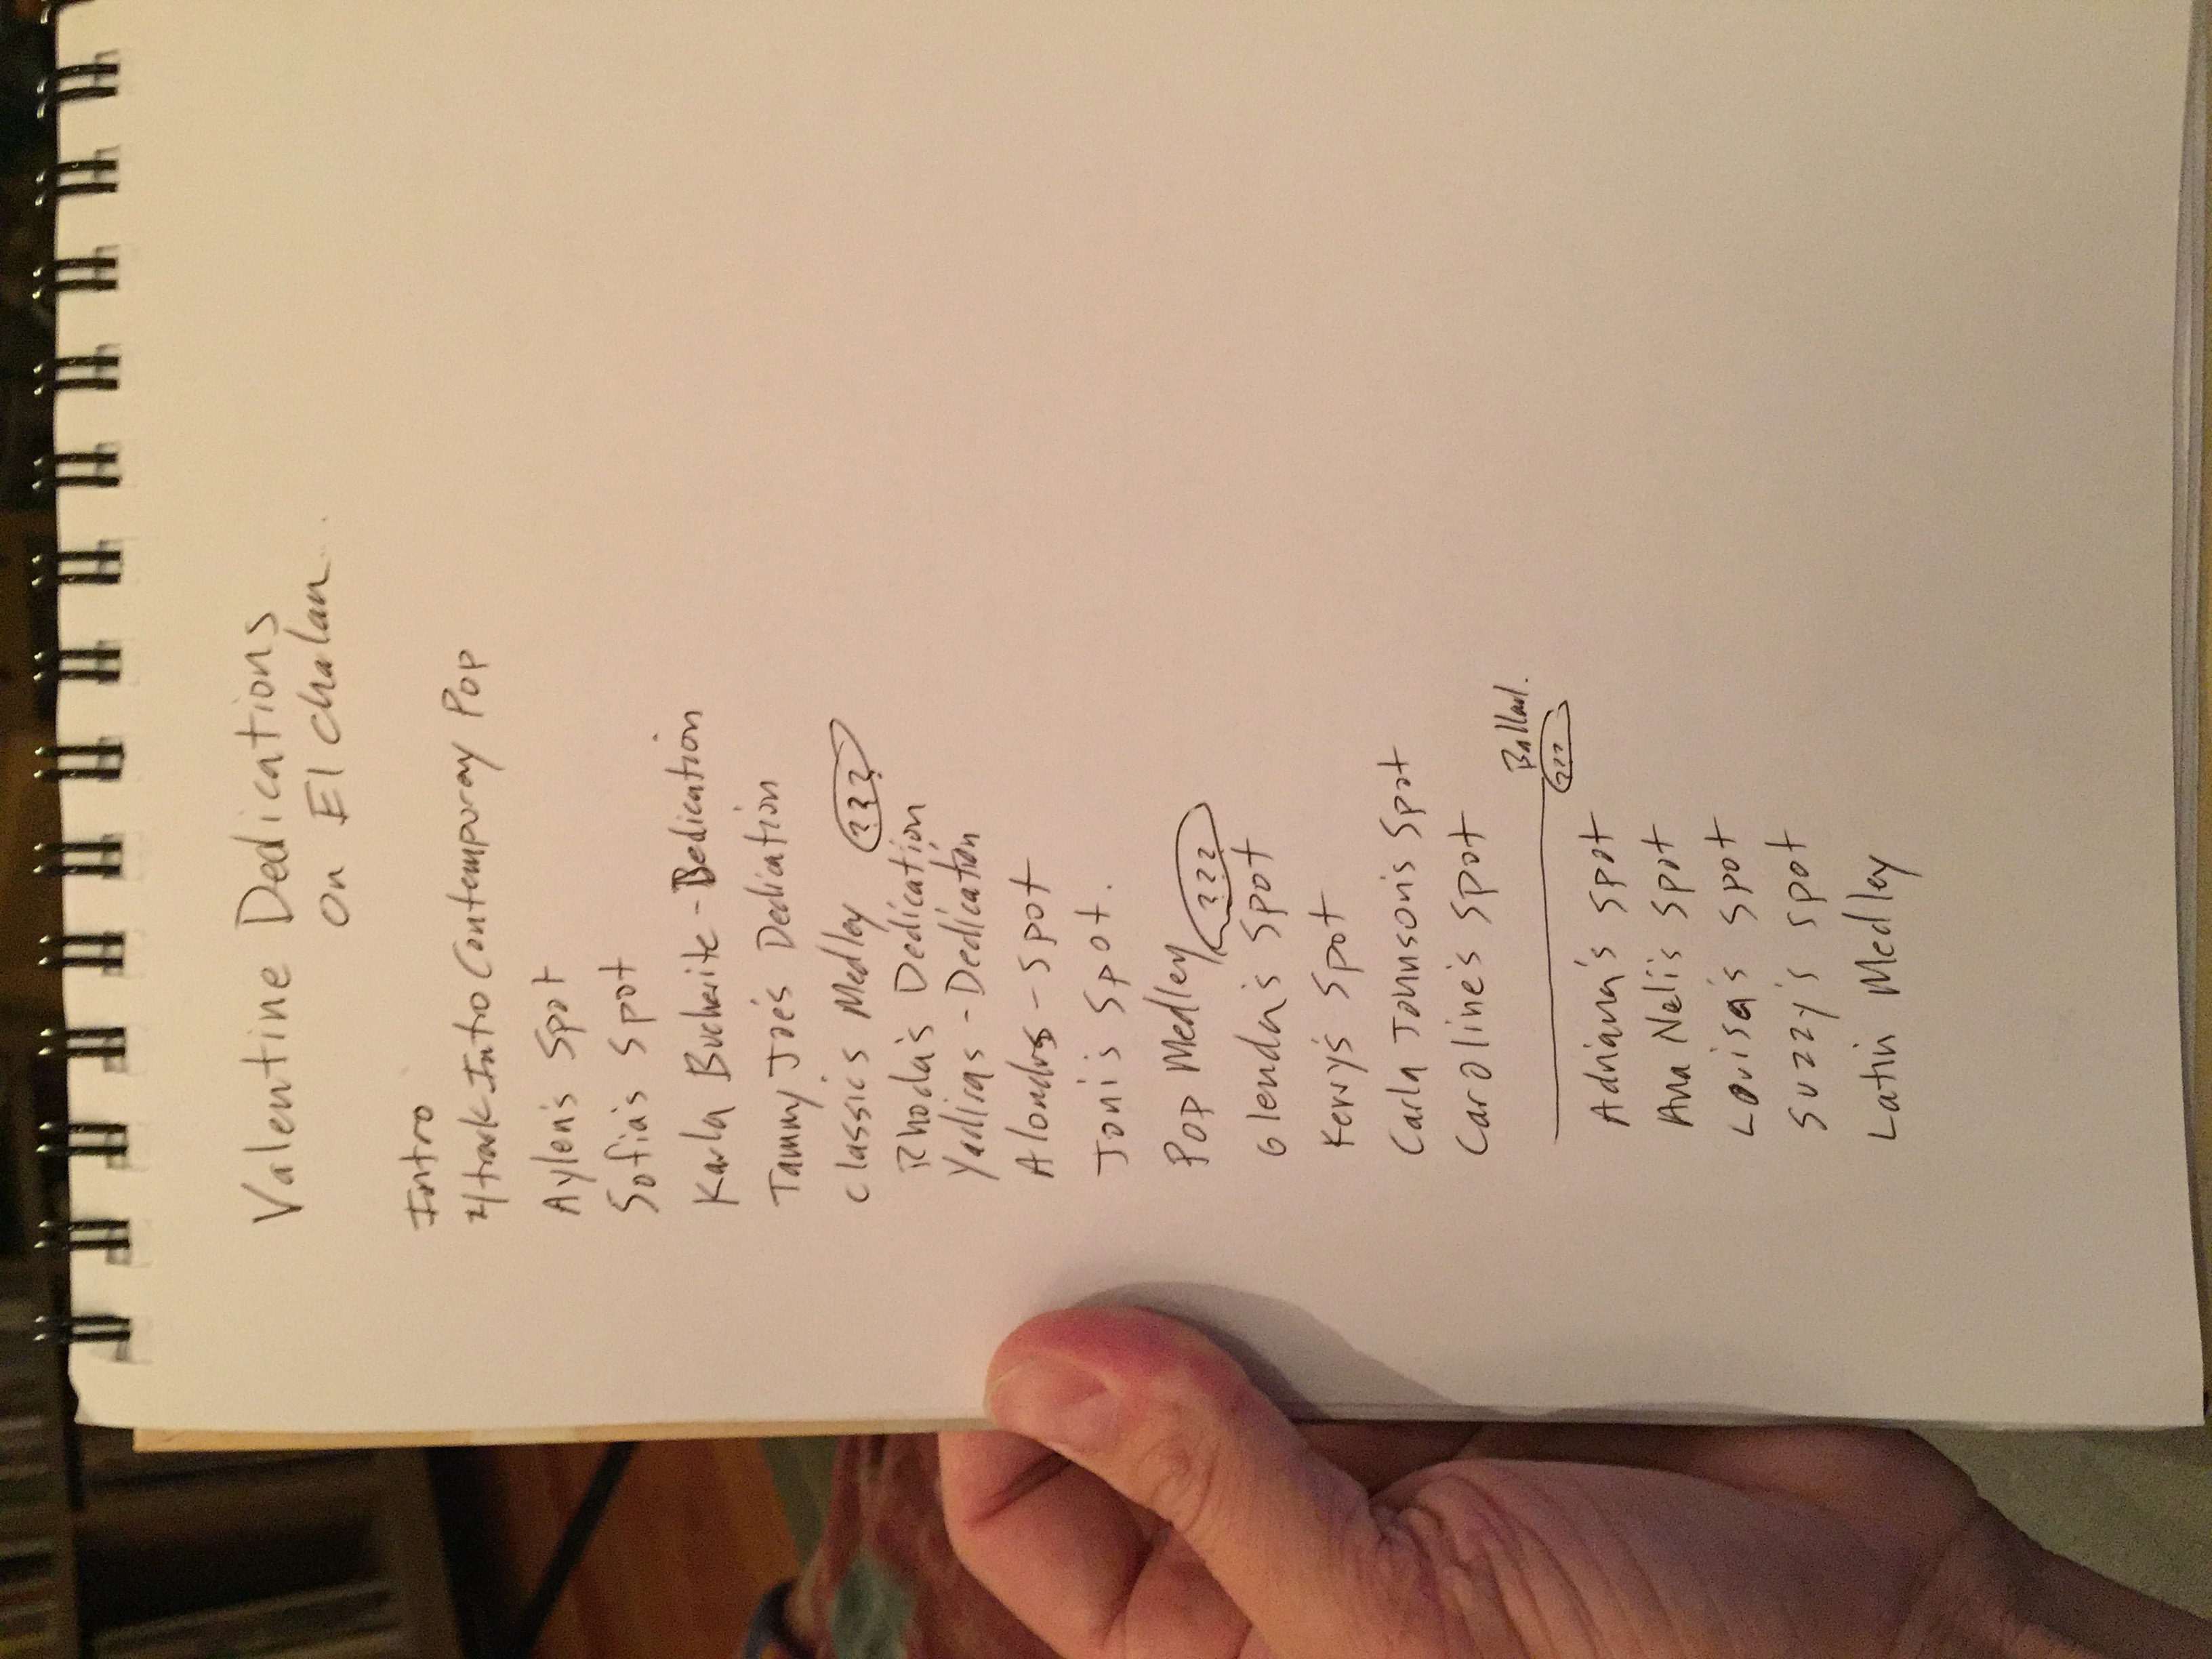 Valentine Dedications
On El Chalan.
Intro
4 track Intro Contemporay Pop
Aylen's Spot
Sofia's Spot
Karla Bucherite - Dedication
Tammy Joe's Dediation
Classics Medley ???
Rhoda's Dedication
Yadiras - Dedication
Alondras - Spot
Joni's Spot.
Pop Medley ???
Glenda's Spot
Kerry's Spot
Carla Johnson's Spot
Caroline's Spot
Ballad.
???
Adriana's Spot
Ana Neli's Spot
Louisa's Spot
Suzzy's Spot
Latin Medley